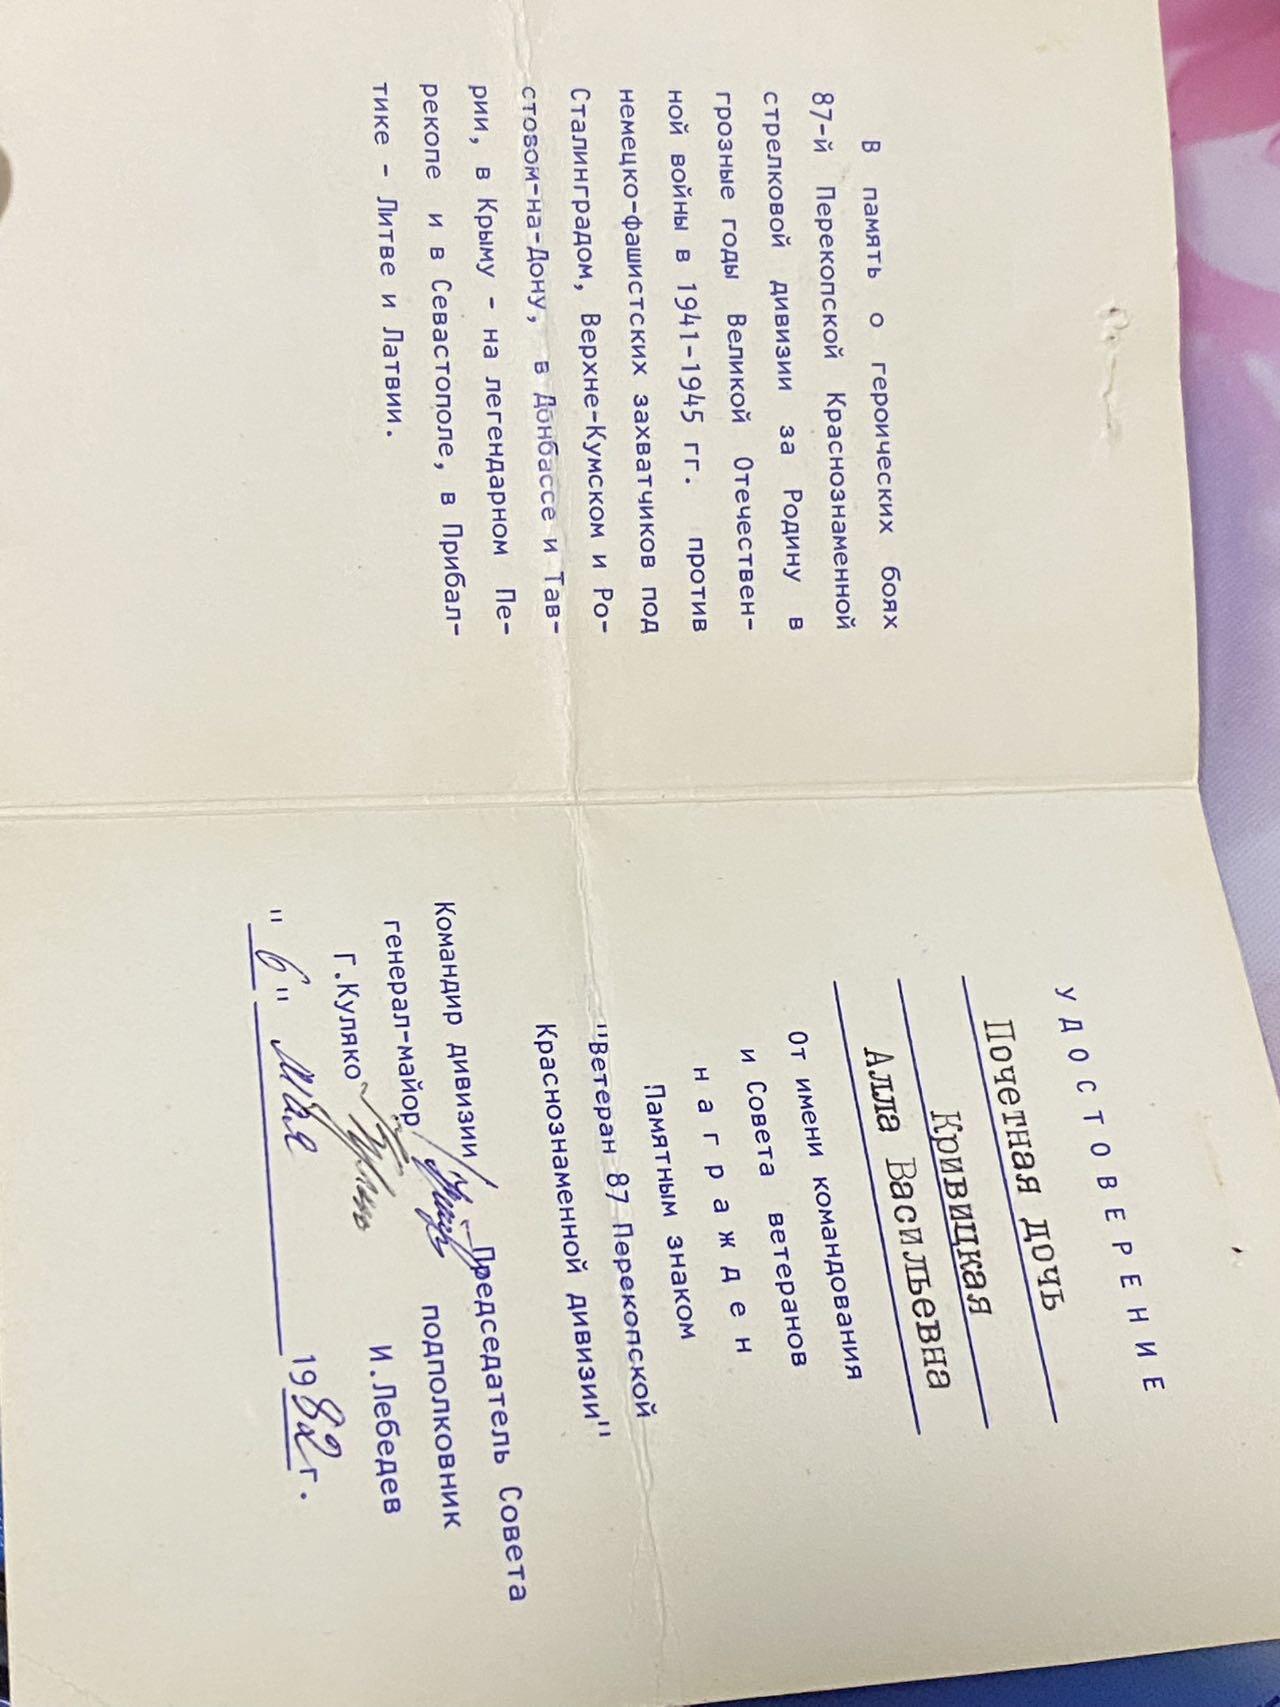 В память о героических боях
87-й Перекопской Краснознаменной
стрелковой дивизии за Родину в
грозные годы Великой Отечествен-
ной войны в 1941-1945 гг. против
немецко-фашистских захватчиков под
Сталинградом, Верхне-Кумском и Ро-
стовом-на-Дону, в Донбассе и Тав-
рии, в Крыму - на легендарном Пе-
рекопе и в Севастополе, в Прибал-
тике - Литве и Латвии.
УДОСТОВЕРЕНИЕ
Почетная дочь
Кривицкая
Алла Васильевна
От имени командования
и Совета ветеранов
награжден
Памятным знаком
"Ветеран 87 Перекопской
Краснознаменной дивизии"
Командир дивизии Председатель Совета
генерал-майор подполковник
Г.Куляко И.Лебедев
"6" мая 1982г.